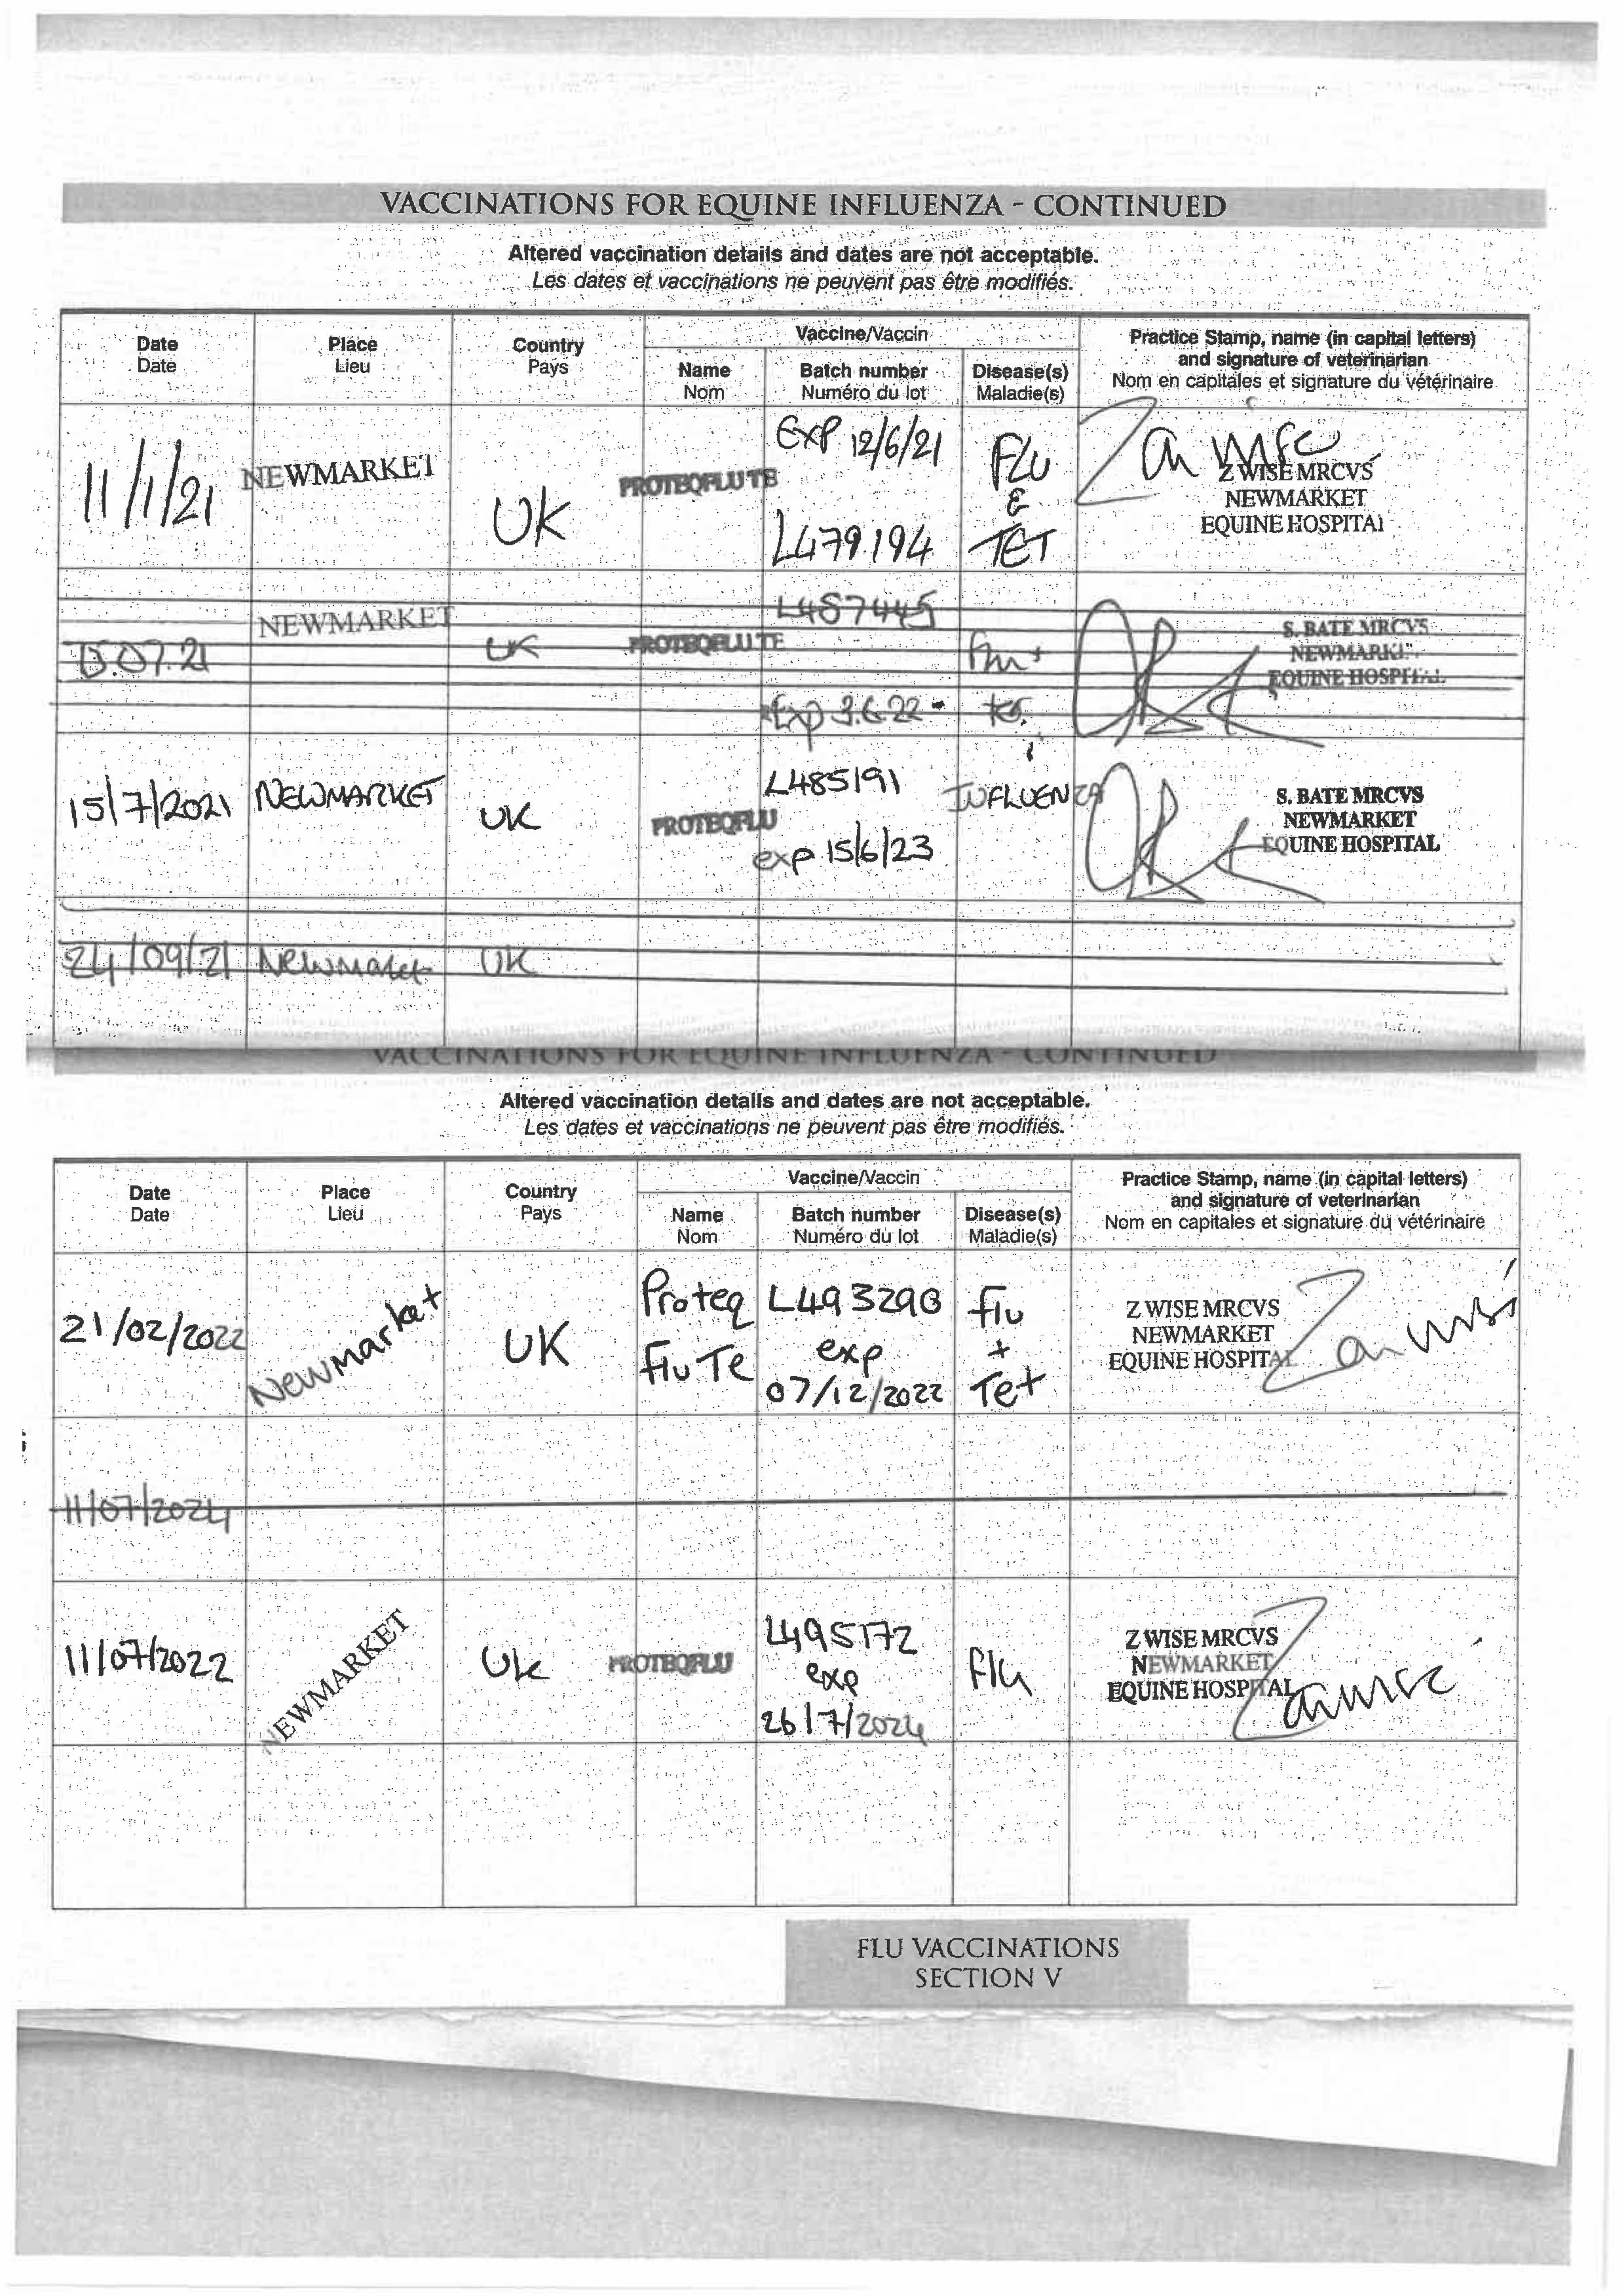 VACCINATIONS FOR EQUINE INFLUENZA - CONTINUED
Altered vaccination details and dates are not acceptable.
Les dates et vaccinations ne peuvent pas être modifiés.
Date Place Country Vaccine/Vaccin Practice Stamp, name (in capital letters)
Date Lieu Pays Name Batch number Disease(s) and signature of veterinarian
Nom Numéro du lot Maladie(s) Nom en capitales et signature du vétérinaire
11/1/21 NEWMARKET UK PROTEQFLU TE EXP 12/6/21 FLU
L479194 & TET
Z WISE MRCVS
NEWMARKET
EQUINE HOSPITAL
15.07.21 NEWMARKET UK PROTEQFLU TE L487445 Flu +
Exp 3.6.22
S. BATE MRCVS
NEWMARKET
EQUINE HOSPITAL
15/7/2021 NEWMARKET UK PROTEQFLU L485191 INFLUENZA
exp 15/6/23
S. BATE MRCVS
NEWMARKET
EQUINE HOSPITAL
24/09/21 Newmarket UK
VACCINATIONS FOR EQUINE INFLUENZA - CONTINUED
Altered vaccination details and dates are not acceptable.
Les dates et vaccinations ne peuvent pas être modifiés.
Date Place Country Vaccine/Vaccin Practice Stamp, name (in capital letters)
Date Lieu Pays Name Batch number Disease(s) and signature of veterinarian
Nom Numéro du lot Maladie(s) Nom en capitales et signature du vétérinaire
21/02/2022 Newmarket UK Proteq L493290 Flu
Flu Te exp +
07/12/2022 Tet
Z WISE MRCVS
NEWMARKET
EQUINE HOSPITAL
11/07/2024
11/07/2022 NEWMARKET UK PROTEQFLU L495172 Flu
exp
26/7/2024
Z WISE MRCVS
NEWMARKET
EQUINE HOSPITAL
FLU VACCINATIONS
SECTION V